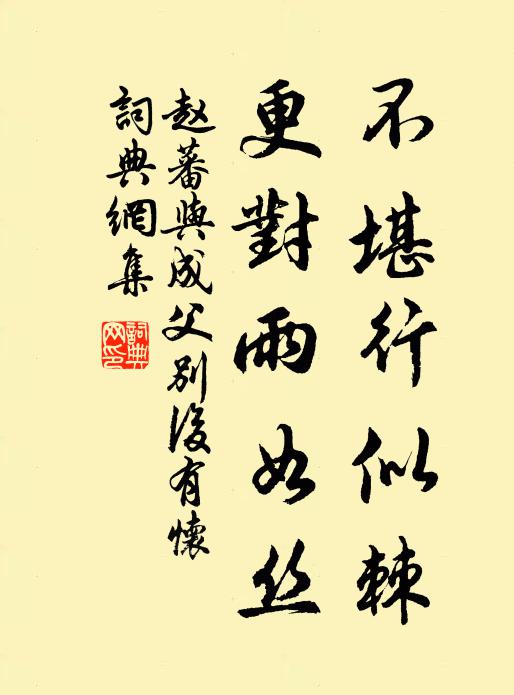 不堪行似棘
更對雨如丝
赵蕃與成父别後有懷
詞典網集
詞典網印